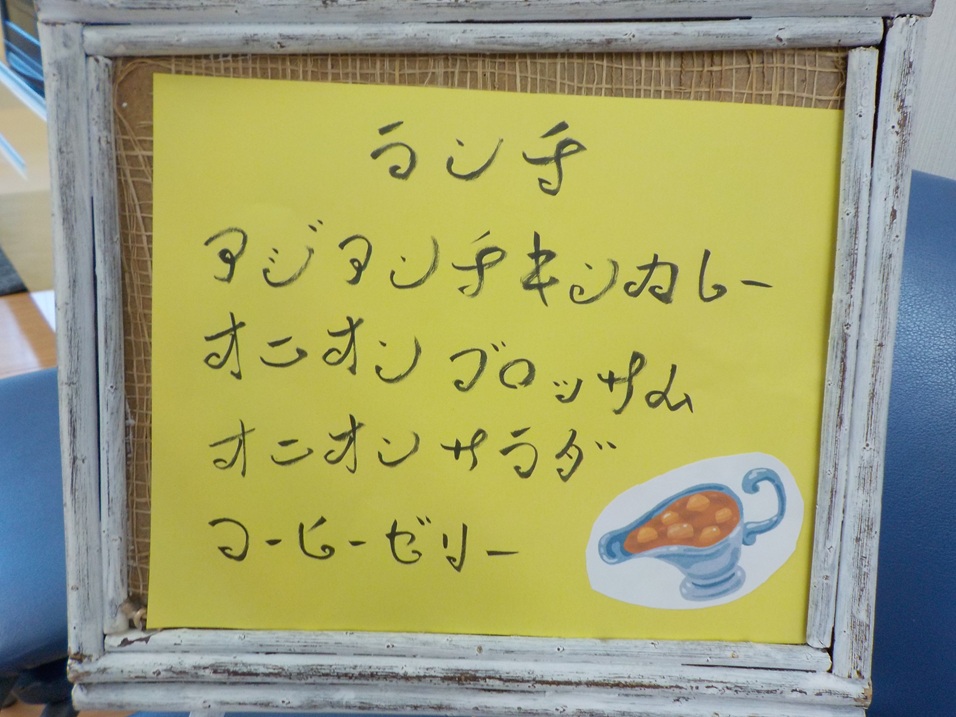 ランチ
アジアンチキンカレー
オニオンブロッサム
オニオンサラダ
コーヒーゼリー